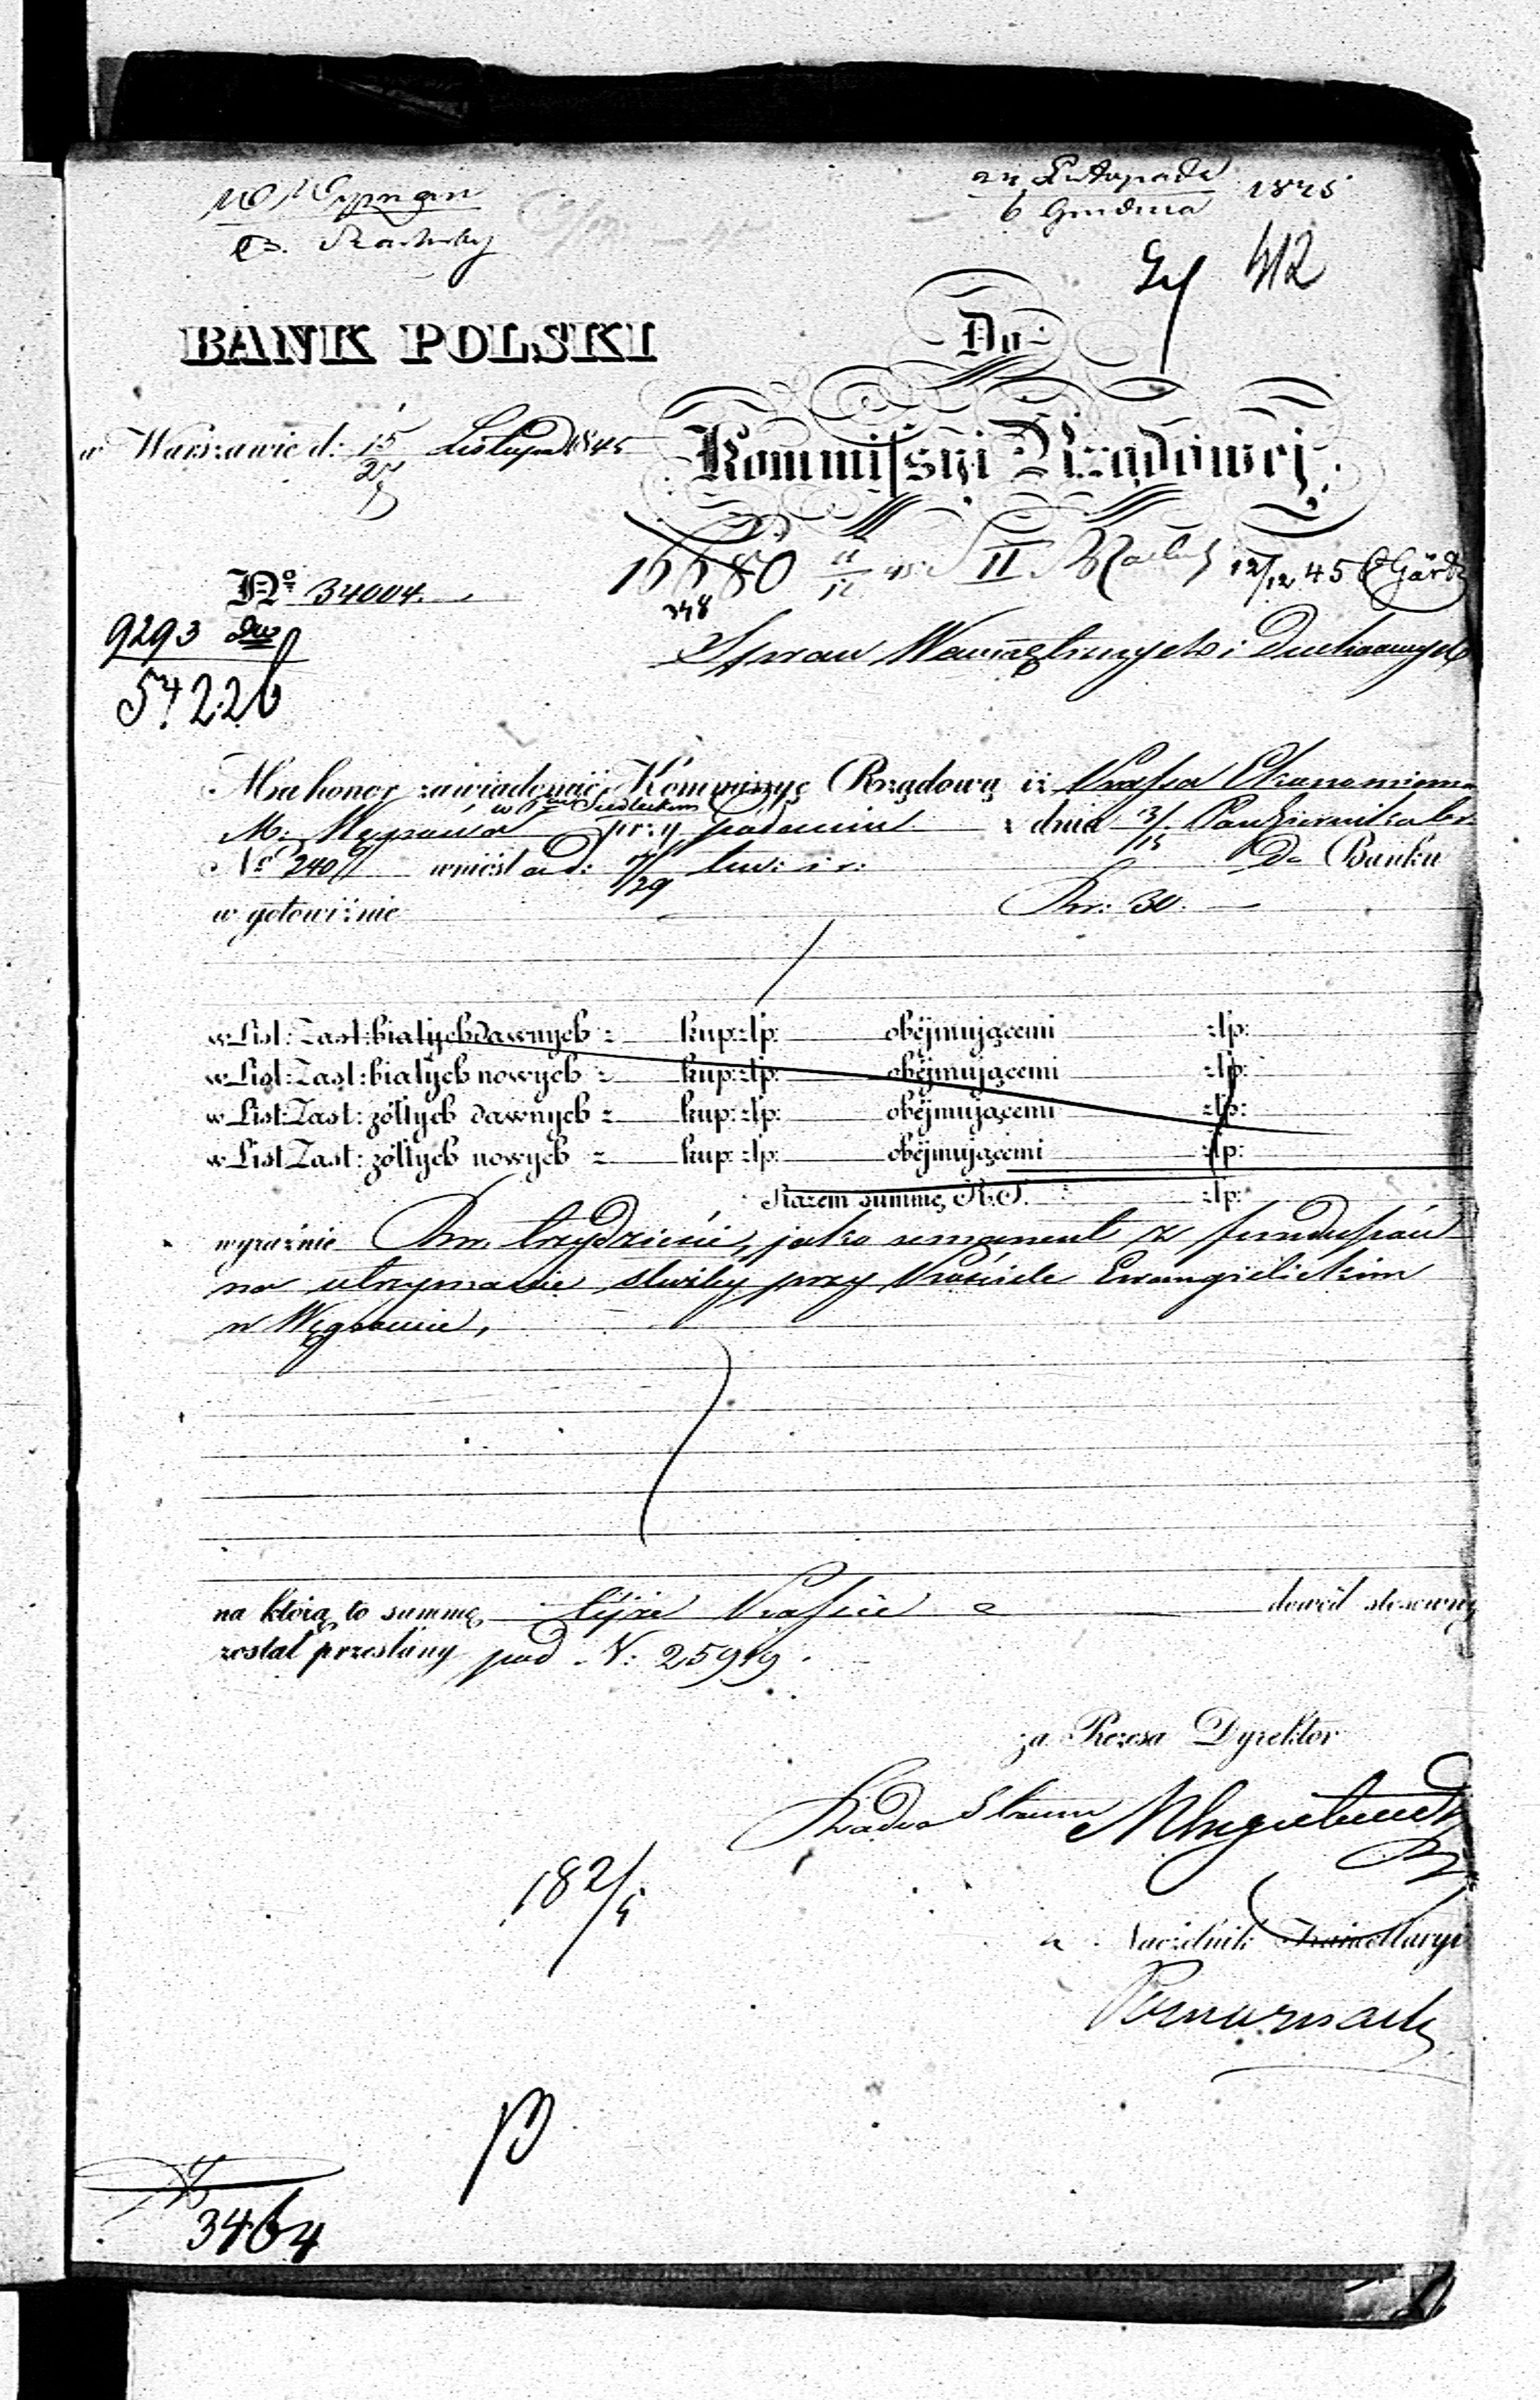 24 Listopada
6 Grudnia 1845
412
BANK POLSKI
Do
Kommissyi Rządowej
w Warszawie d: 15/27 Listopad 1845
16680 11/12 45. S II 12/12 45
348
No 34004.
9293
54226
Spraw Wewnętrznych i Duchownych
Ma honor zawiadomić Kommissyę Rządową iż Kassa Ekonomiczna
w Gub. Siedleckim
M. Węgrowa przy podaniu z dnia 3/15 Października b.r.
No 240 wniosł a d: 17/29 tm: i r: Do Banku
w gotowiźnie Rsr: 30.
w List: Zast: białych dawnych : kup: złp: obejmującemi złp:
w List: Zast: białych nowych : kup: złp: obejmującemi złp:
w List: Zast: żółtych dawnych : kup: złp: obejmującemi złp:
w List: Zast: żółtych nowych : kup: złp: obejmującemi złp:
Razem summę R.S. złp:
wyraźnie Rsr. trzydzieści, jako remanent z funduszów
na utrzymanie służby przy Kościele Ewangielickim
w Węgrowie,
na którą to summę tejże Kassie dowód stosowny
został przesłany pod N: 25919.
za Prezesa Dyrektor
Radca Stanu
182/5
Naczelnik Kancellaryi
3464